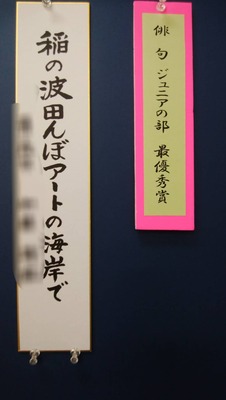 俳句 ジュニアの部 最優秀賞
稲の波田んぼアートの海岸で